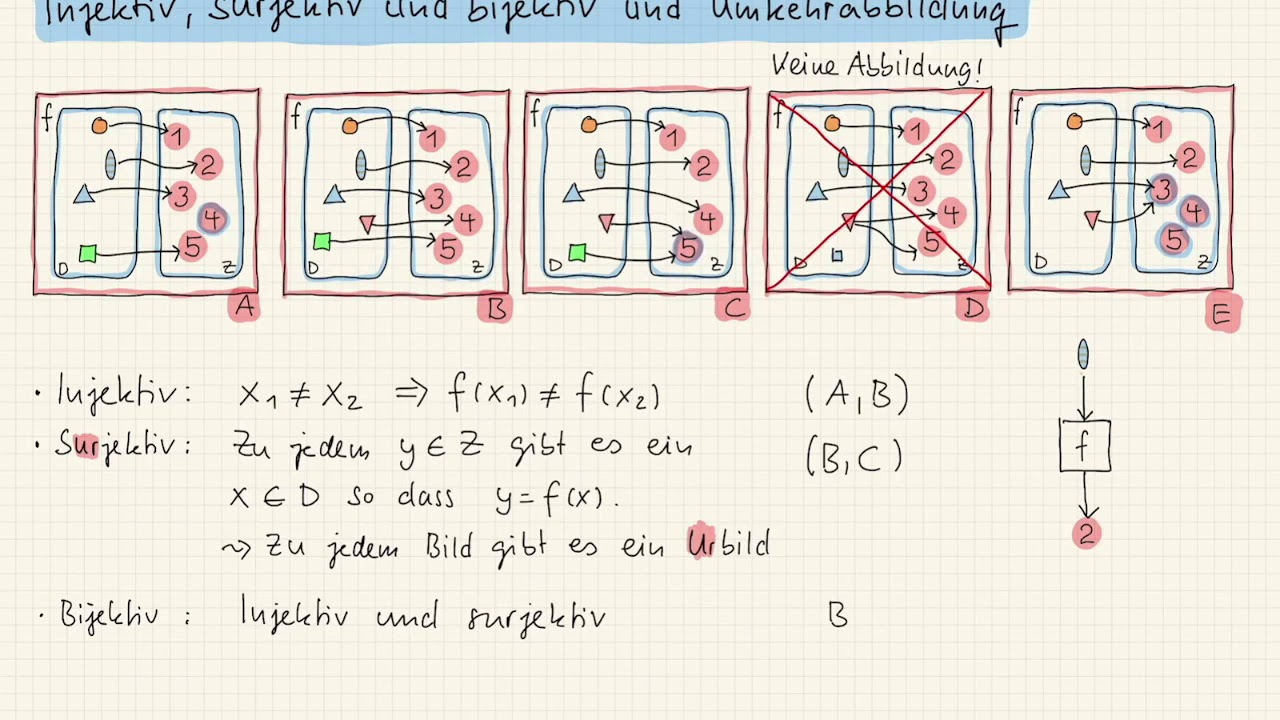 Injektiv, surjektiv und bijektiv und Umkehrabbildung
Keine Abbildung!
f 1 2 3 4 5 D Z A
f 1 2 3 4 5 D Z B
f 1 2 4 5 D Z C
f 1 2 3 4 5 D Z D
f 1 2 3 4 5 D Z E
• Injektiv: x₁ ≠ x₂ ⇒ f(x₁) ≠ f(x₂) (A,B)
• Surjektiv: Zu jedem y ∈ Z gibt es ein (B,C)
x ∈ D so dass y = f(x).
⇝ Zu jedem Bild gibt es ein Urbild
• Bijektiv: Injektiv und surjektiv B
f
2